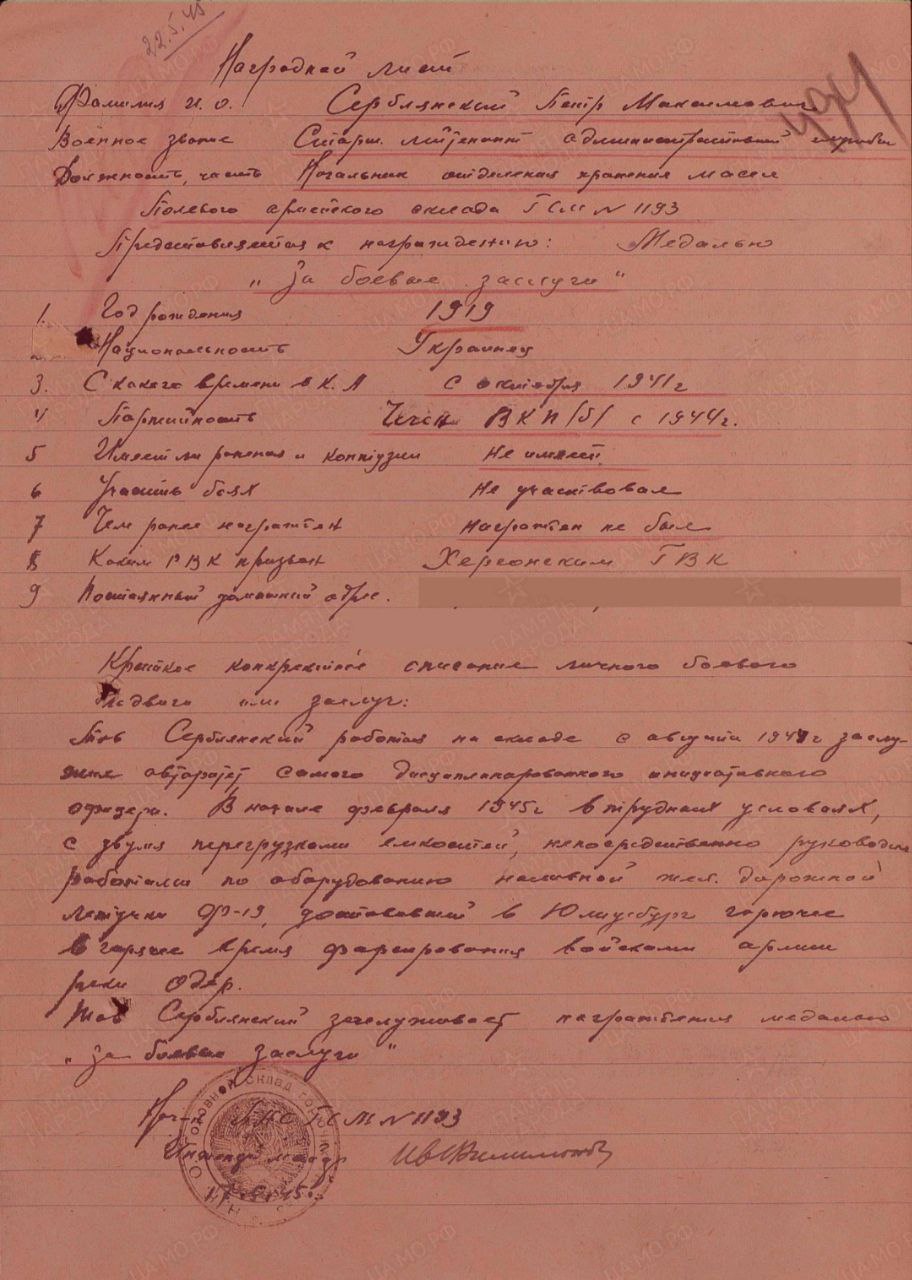 22.5.45
Наградной лист
Фамилия и. о. Сербиянский Петр Максимович
Военное звание Старш. лейтенант административной службы
Должность, часть Начальник отделения хранения масел
Полевого армейского склада ГСМ N 1193
Представляется к награждению: Медалью
"За боевые заслуги"
1. Год рождения 1919
Национальность Украинец
3. С какого времени в К. А с октября 1941г
4 Партийность Член ВКП/б/ с 1944г.
5 Имеет ли ранения и контузии Не имеет.
6 Участь боях Не участвовал
7 Чем ранее награжден награжден не был
8 Каким РВК призван Херсонским ГВК
9 Постоянный домашний адрес.
Краткое конкретное описание личного боевого
подвига или заслуг:
Тов Сербиянский работая на складе с августа 1944г заслу-
жил авторитет самого дисциплинированного инициативного
офицера. В начале февраля 1945г в трудных условиях,
с двумя перегрузками емкостей, непосредственно руководил
работами по оборудованию наливной жел. дорожной
летучки Ф-19, доставившей в Юлиусбург горючее
в горячее время форсирования войсками армии
реки Одер.
Тов Сербиянский заслуживает награждения медалью
"за боевые заслуги"
Нач-к ПАС ГСМ N 1193
Инженер майор